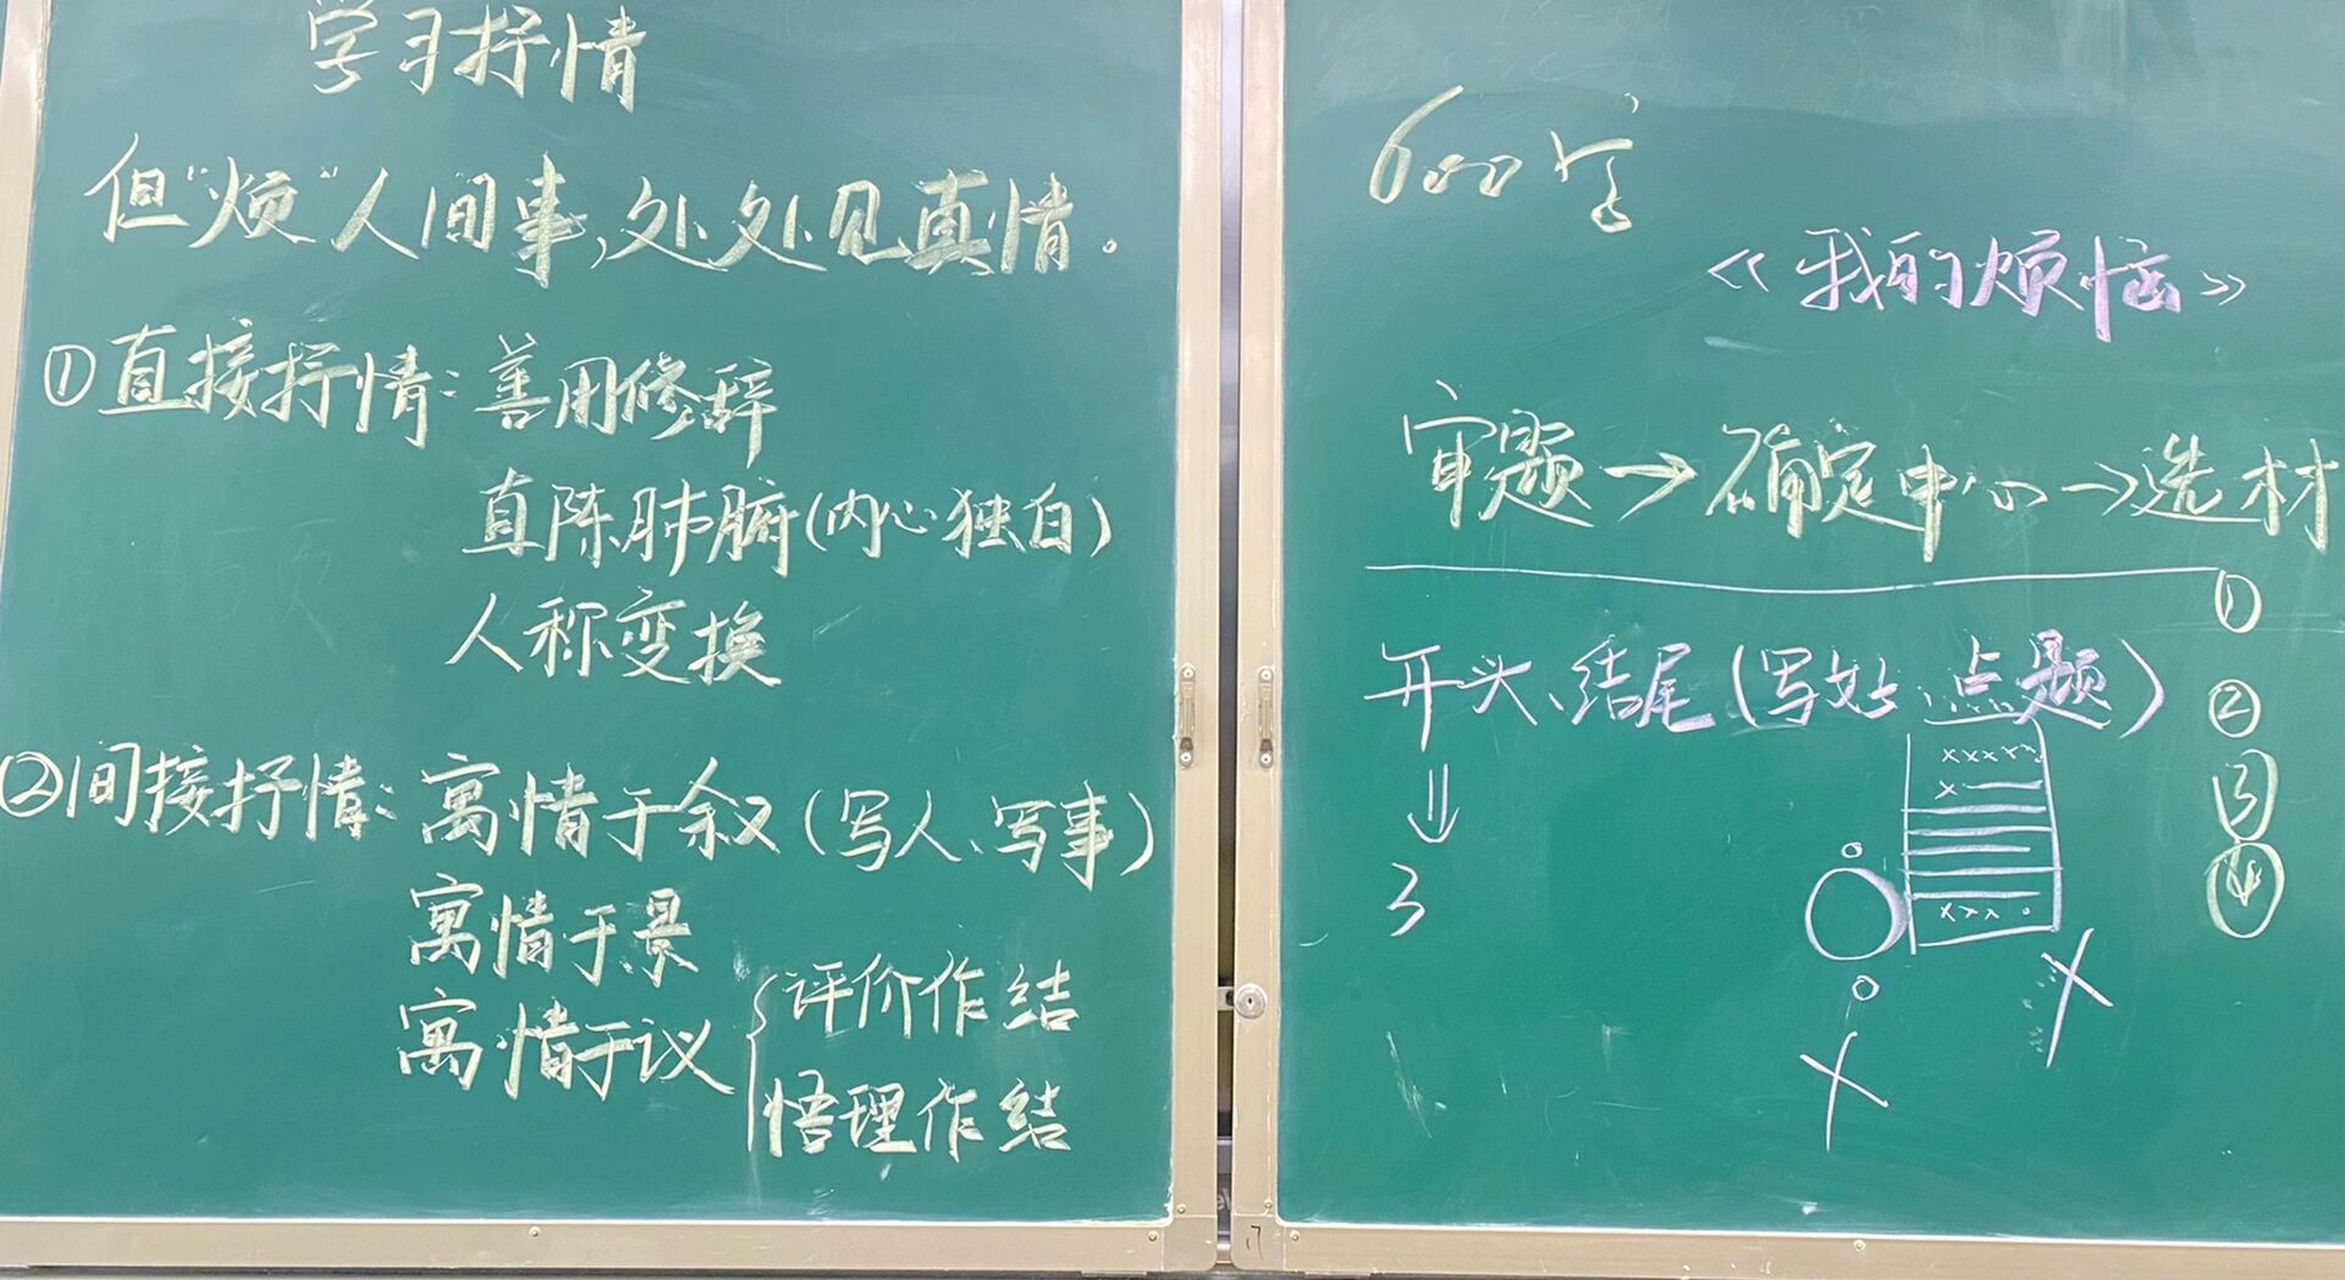 学习抒情
但“烦”人间事,处处见真情.
①直接抒情:善用修辞
直陈肺腑(内心独白)
人称变换
②间接抒情:寓情于叙(写人、写事)
寓情于景
寓情于议{评价作结
悟理作结
600字
《我的烦恼》
审题→确定中心→选材
①
开头、结尾(写好点题)
②
③
④
⇓
3
xxxxx
x
xxx.